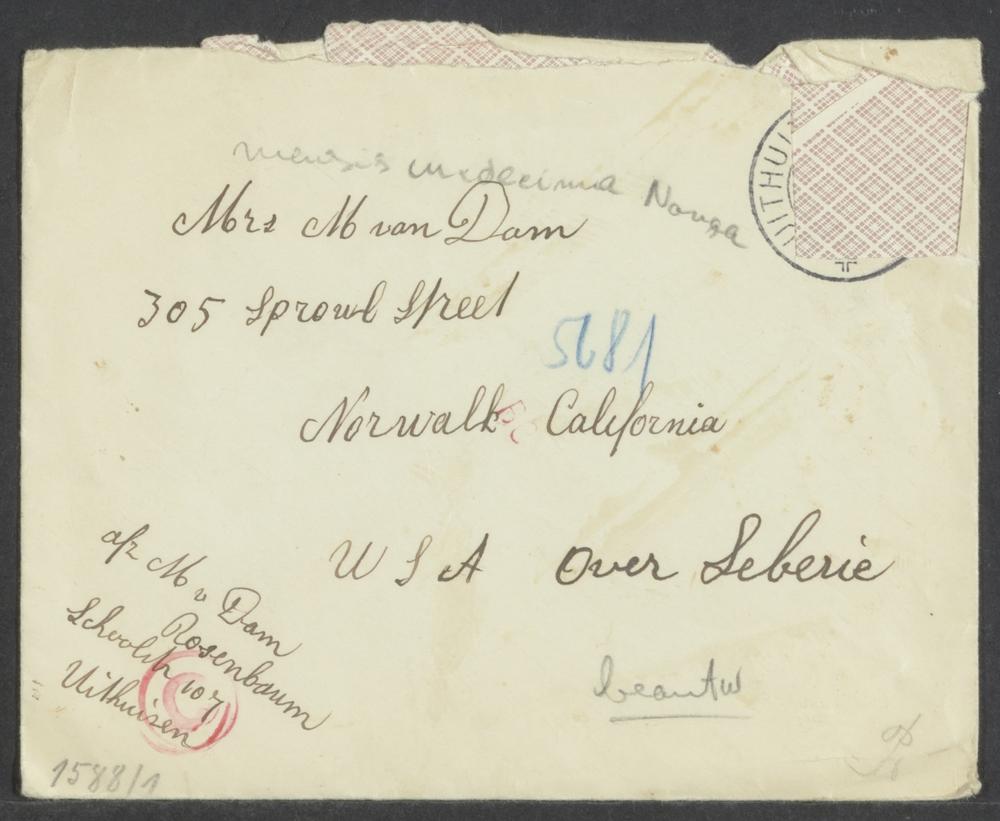 UITHUI
Mrs M van Dam
305 Sprowl Street
5681
Norwalk California
U S A Over Seberie
afz M v Dam
Rosenbaum
Schoolstr 107
Uithuisen
C
beantw
1588/1